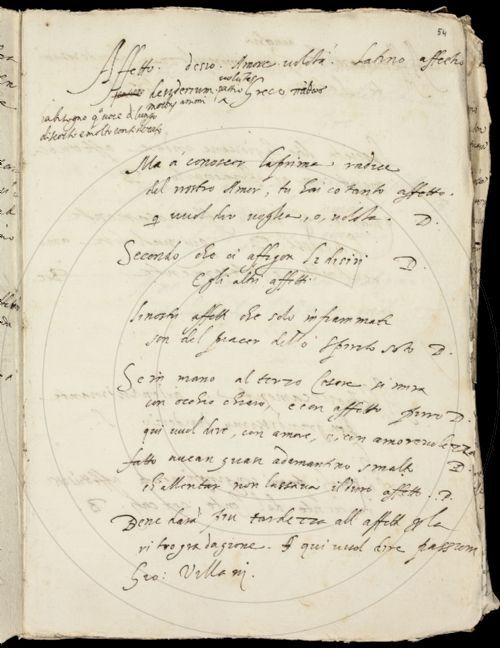 54
Affetto. desio. Amore volõtà. Latino affectio
desyderium, voluntas, patio Greco πάθος
motus animi
discorso e molto
Ma à conoscer la prima radice
del nostro Amor, tu hai cotanto affetto.
q. vuol dir voglia, o, volõta. D.
Secondo che ci affigon li disiri D.
E gli altri affetti
li nostri affetti che solo infiammati
son del piacer dello Spirito Sãto D.
Se in mano al terzo Cesare si mira
con occhio chiaro, e con affetto puro D.
qui vuol dire, con amore, e, con amorevolezza
fatto avean quasi adamantino smalto D.
ch'allentar non lassava il duro affetto. D.
Bene darà piu tardezza all' affetti p la
ritrogradagione. E qui vuol dire passione
Gio: Villani.